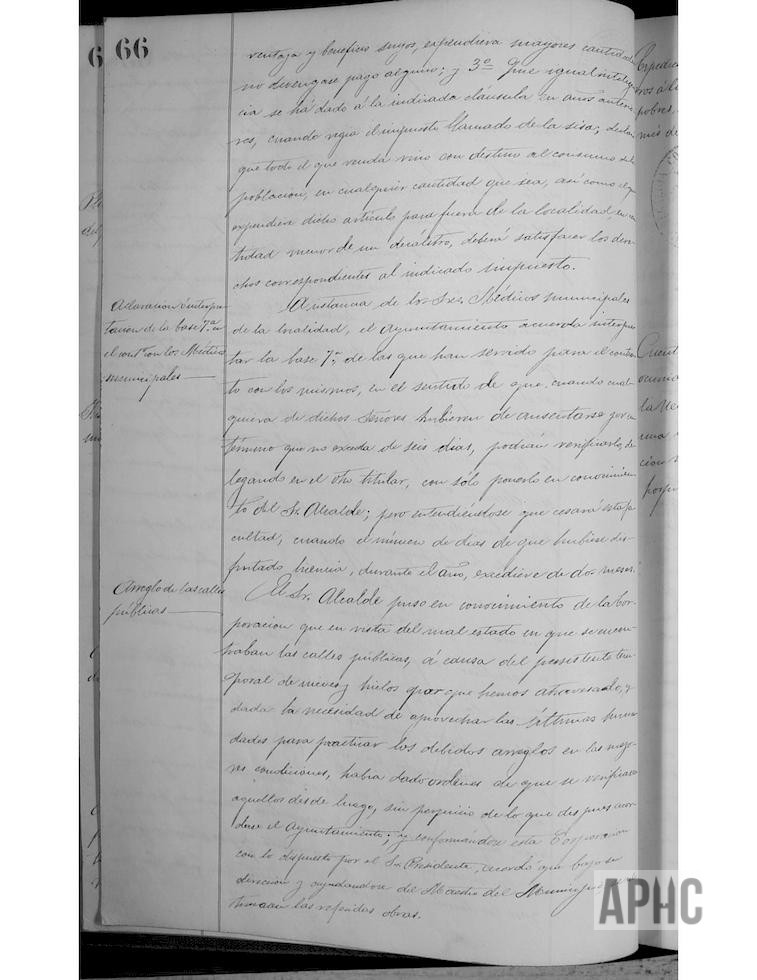 66
ventaja y beneficio suyos, expendiera mayores cantidades
no devengase pago alguno; y 3º Que igual inteligen-
cia se há dado á la indicada cláusula en años anterio-
res, cuando regia el impuesto llamado de la sisa; declara
que todo el que venda vino con destino al consumo de la
poblacion, en cualquier cantidad que sea, así como el que
expendiere dicho artículo para fuera de la localidad, en can-
tidad menor de un decálitro, deberá satisfacer los dere-
chos correspondientes al indicado impuesto.
Aclaracion é interpre-
tacion de la base 7ª en
el contº con los Médicos
municipales
A instancia de los Sres. Médicos municipales
de la localidad, el Ayuntamiento acuerda interpre-
tar la base 7ª, de las que han servido para el contra-
to con los mismos, en el sentido de que, cuando cual-
quiera de dichos Señores hubieren de ausentarse por un
término que no exceda de seis dias, podrán verificarlo, de-
legando en el otro titular, con sólo ponerlo en conocimien-
to del Sr. Alcalde; pero entendiéndose que cesará esta fa-
cultad, cuando el número de dias de que hubiese dis-
frutado licencia, durante el año, excediere de dos meses.
Arreglo de las calles
públicas
El Sr. Alcalde puso en conocimiento de la Cor-
poracion que en vista del mal estado en que se encon-
traban las calles públicas, á causa del persistente tem-
poral de nieves y hielos por que hemos atravesado, y
dada la necesidad de aprovechar las últimas hume-
dades para practicar los debidos arreglos en las mejo-
res condiciones, habia dado ordenes de que se verificaran
aquellos desde luego, sin perjuicio de lo que despues acor-
dase el Ayuntamiento; y conformándose esta Corporacion
con lo dispuesto por el Sr. Presidente, acordó que bajo su
direccion y ayudandose del Maestro del Municipio
las referidas obras.
APHC